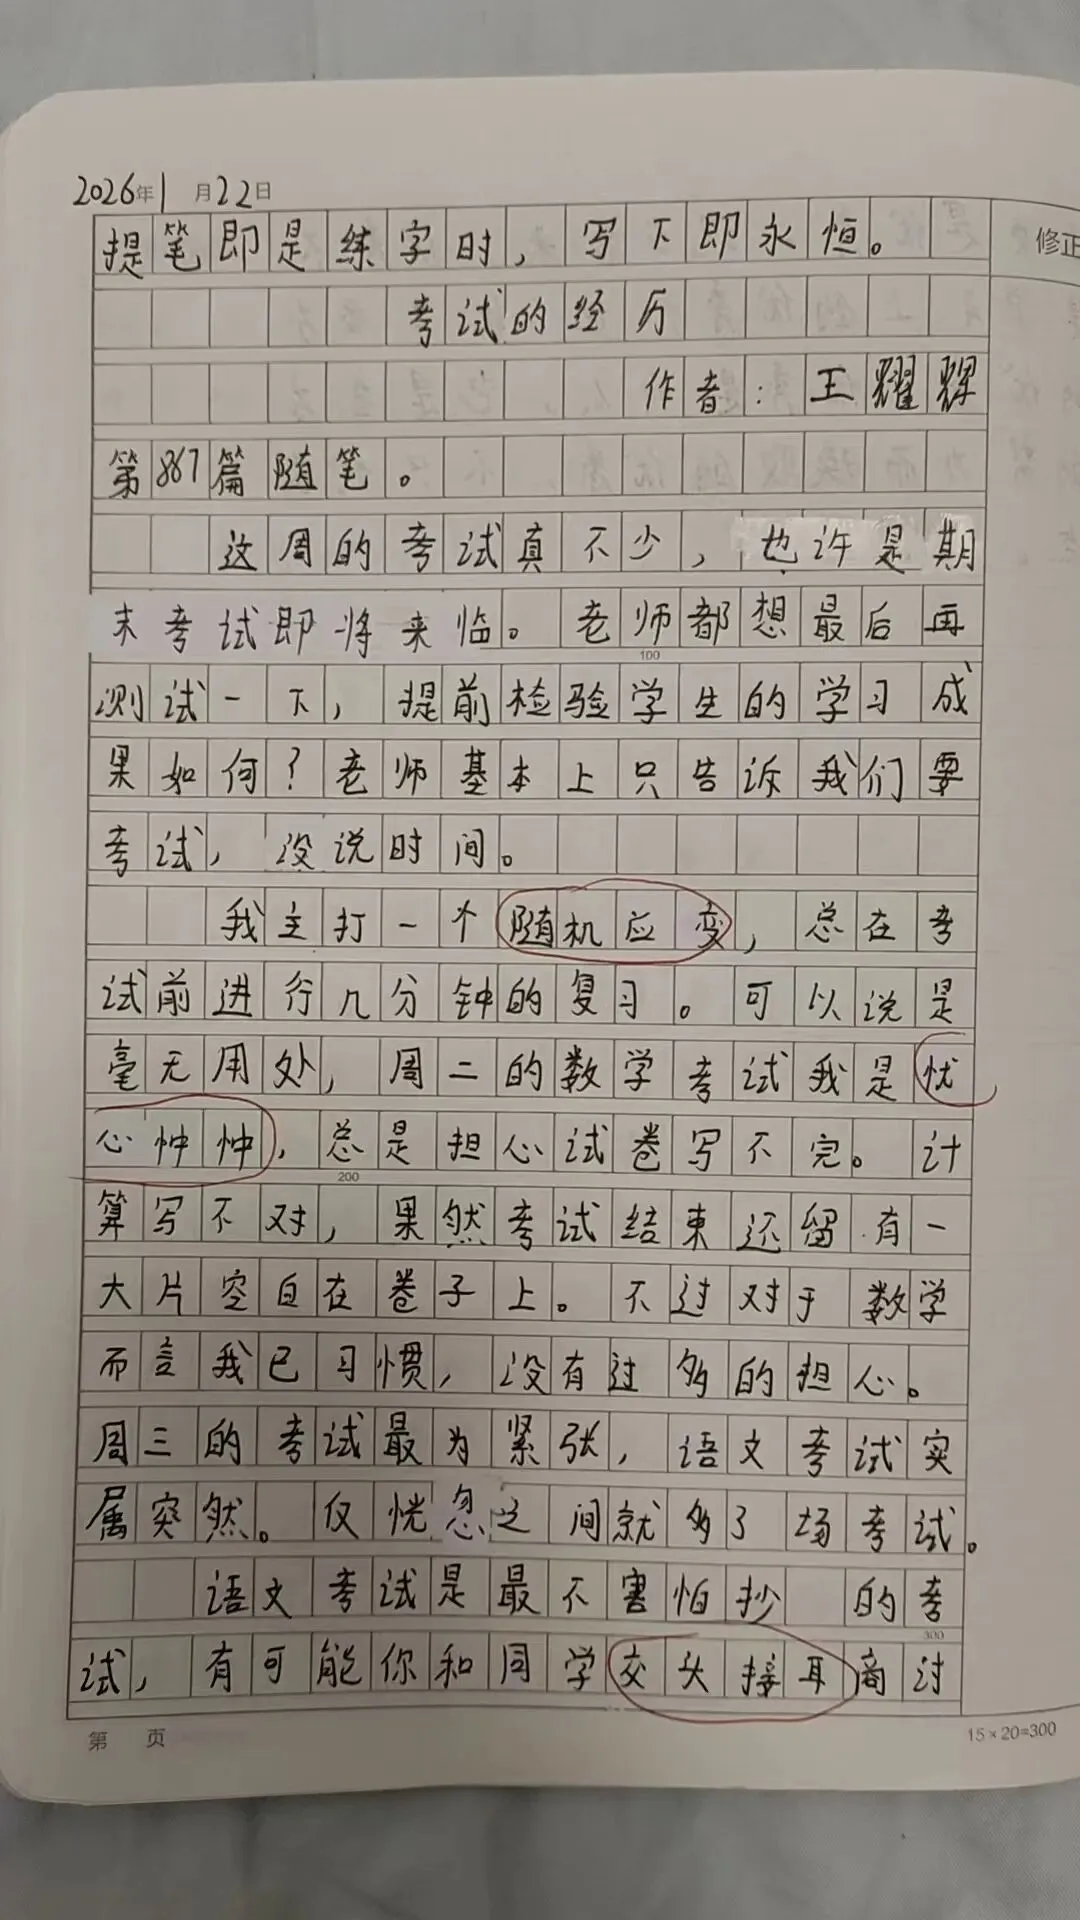 2026年1月22日
提笔即是练字时，写下即永恒。
修正
考试的经历
作者：王耀辉
第867篇随笔。
这周的考试真不少，也许是期
末考试即将来临。老师都想最后再
测试一下，提前检验学生的学习成
果如何？老师基本上只告诉我们要
考试，没说时间。
我主打一个随机应变，总在考
试前进行几分钟的复习。可以说是
毫无用处，周二的数学考试我是忧
心忡忡，总是担心试卷写不完。计
算写不对，果然考试结束还留有一
大片空白在卷子上。不过对于数学
而言我已习惯，没有过多的担心。
周三的考试最为紧张，语文考试实
属突然。仅恍忽之间就多了场考试。
语文考试是最不害怕抄的考
试，有可能你和同学交头接耳商讨
100
200
300
第 页
15×20=300